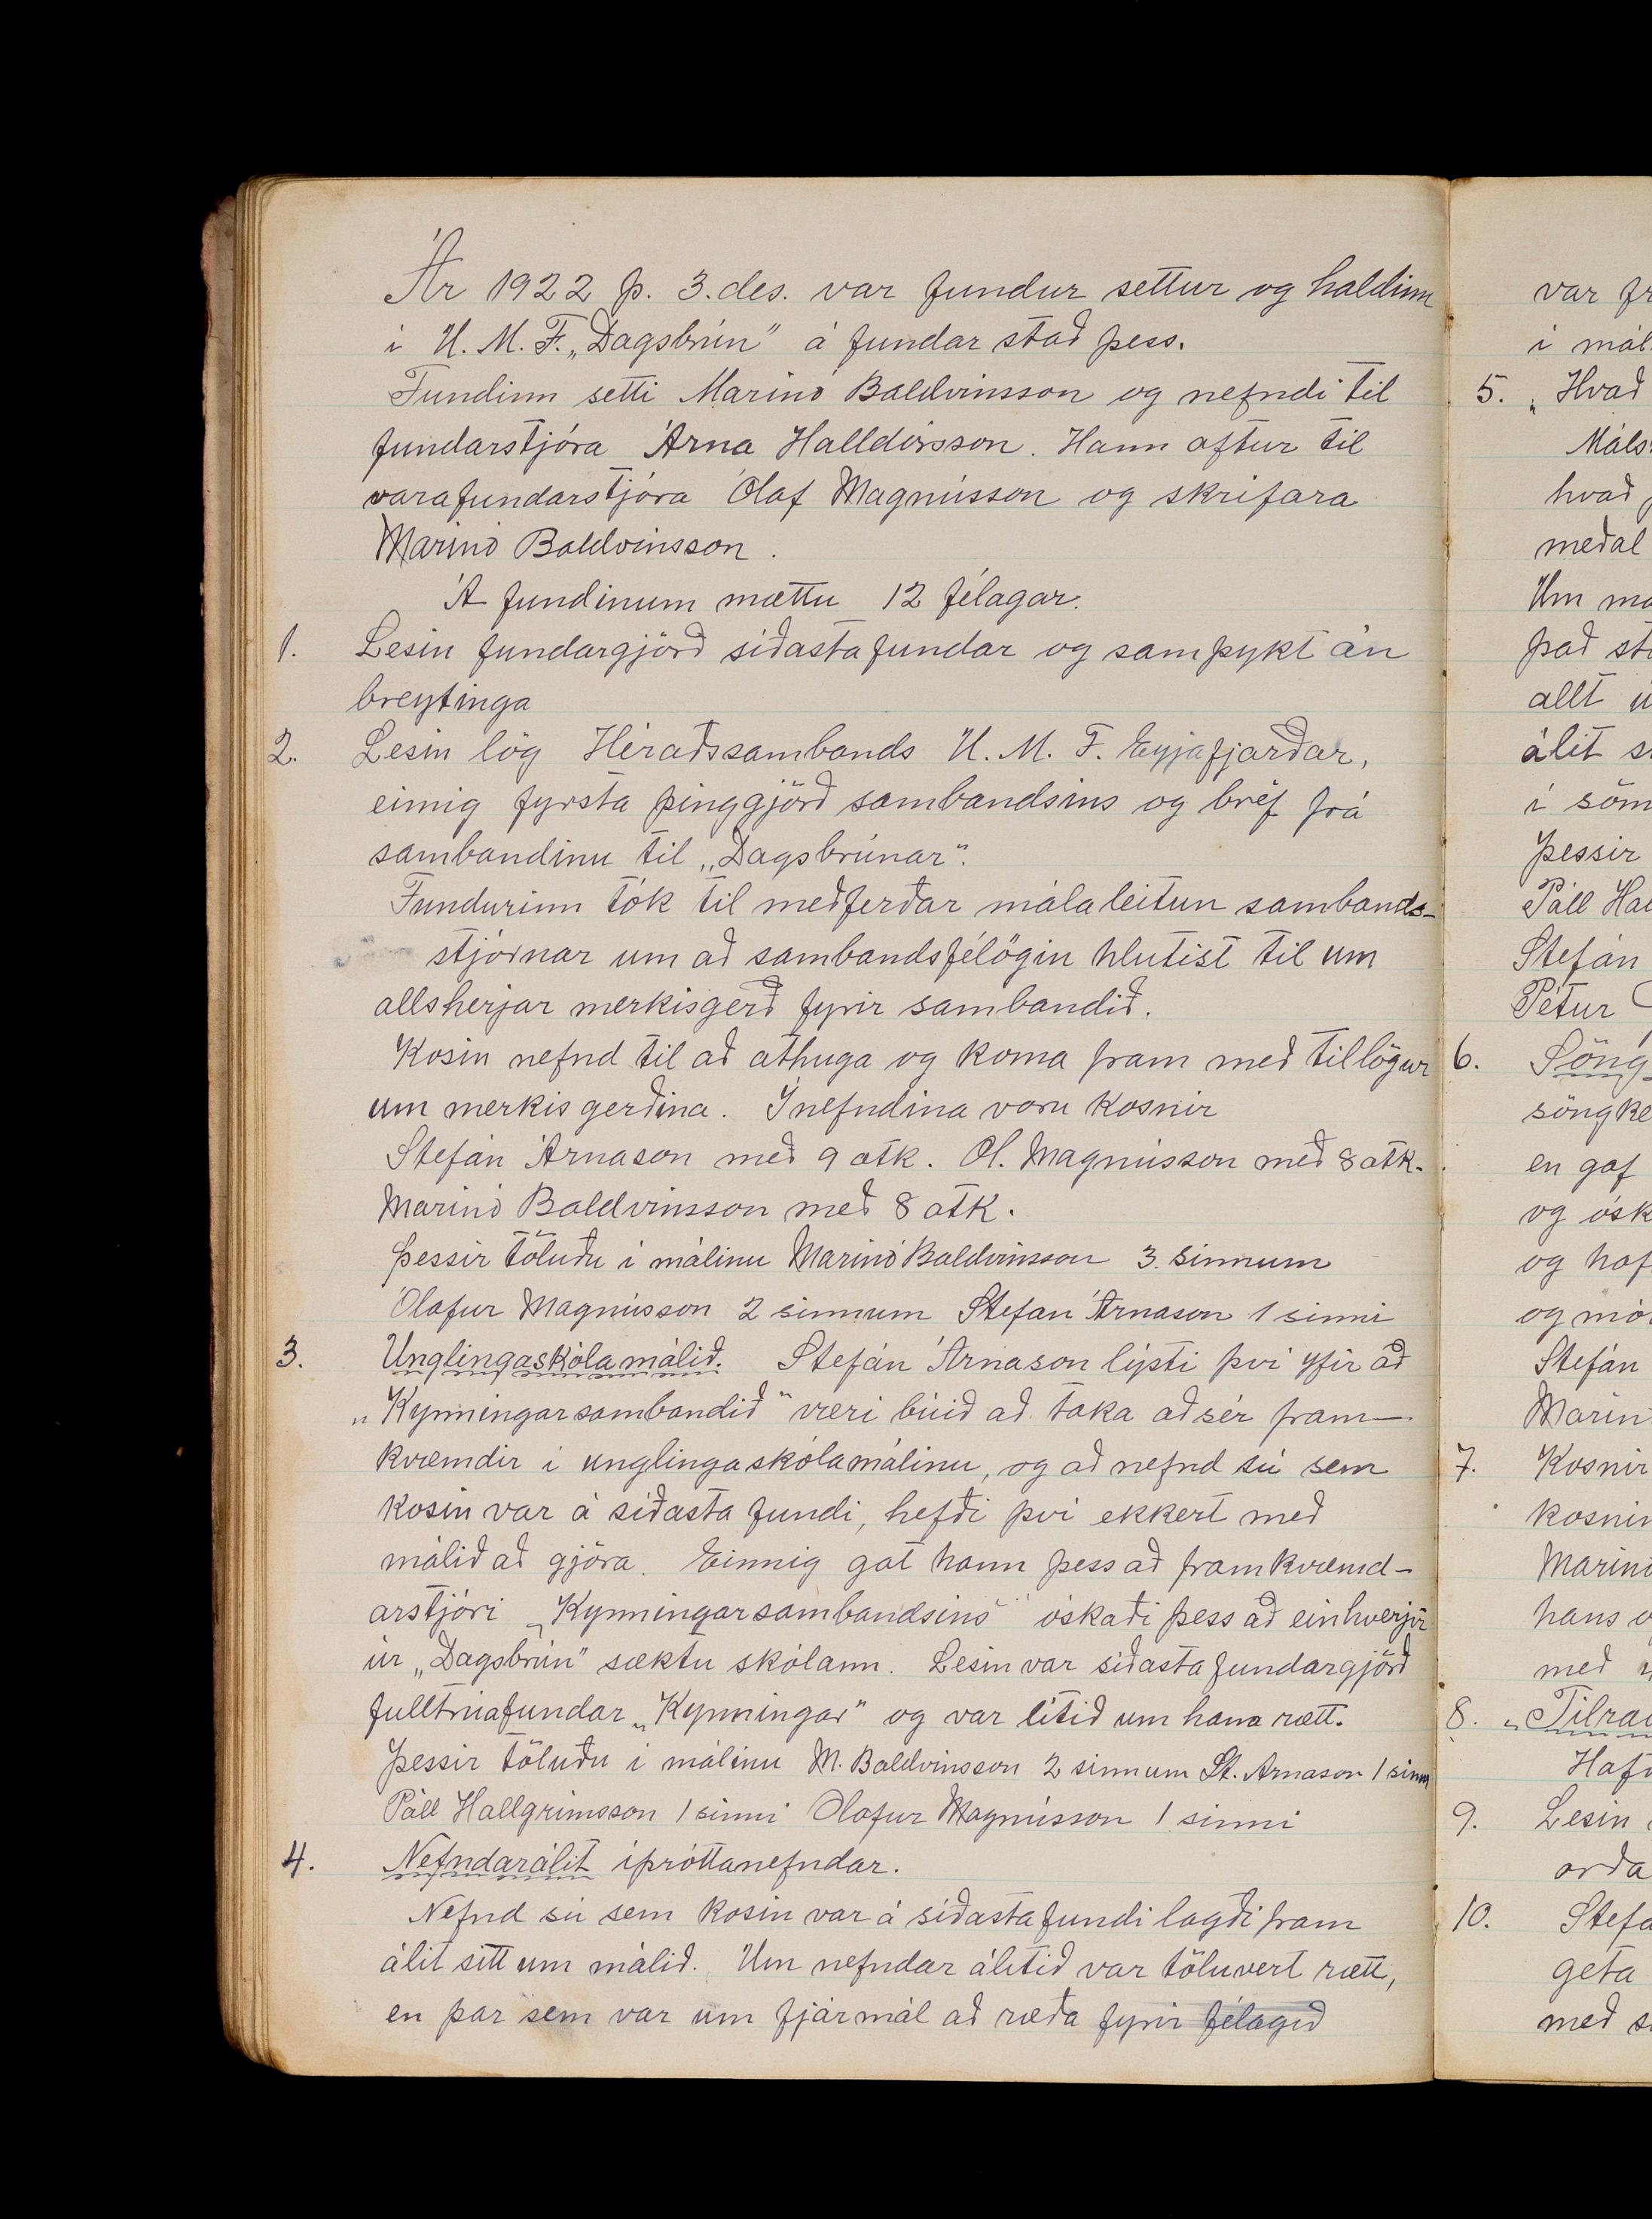 Ár 1922 þ. 3. des. var fundur settur og haldinn
í U. M. F. „Dagsbrún" á fundar stað þess.
Fundinn setti Marinó Baldvinsson og nefndi til
fundarstjóra Árna Halldórsson. Hann aftur til
varafundarstjóra Ólaf Magnússon og skrifara
Marinó Baldvinsson.
Á fundinum mættu 12 félagar.
1. Lesin fundargjörð síðasta fundar og samþykt án
breytinga
2. Lesin lög Héraðssambands U. M. F. Eyjafjarðar,
einnig fyrsta þinggjörð sambandsins og bréf frá
sambandinu til „Dagsbrúnar".
Fundurinn tók til meðferðar málaleitun sambands-
stjórnar um að sambandsfélögin hlutist til um
allsherjar merkisgerð fyrir sambandið.
Kosin nefnd til að athuga og koma fram með tillögur
um merkisgerðina. Í nefndina voru kosnir
Stefán Árnason með 9 atk. Ól. Magnússon með 8 atk.
Marinó Baldvinsson með 8 atk.
Þessir töluðu í málinu Marinó Baldvinsson 3. sinnum
Ólafur Magnússon 2 sinnum Stefan Árnason 1 sinni
3. Unglingaskólamálið. Stefán Árnason lýsti því yfir að
„Kynningarsambandið" væri búið að taka að sér fram-
kvæmdir í unglingaskólamálinu, og að nefnd sú sem
kosin var á síðasta fundi, hefði því ekkert með
málið að gjöra. Einnig gat hann þess að framkvæmd-
arstjóri „Kynningarsambandsins" óskaði þess að einhverjir
úr „Dagsbrún" sæktu skólann. Lesin var síðasta fundargjörð
fulltrúafundar „Kynningar" og var lítið um hana rætt.
Þessir töluðu í málinu M. Baldvinsson 2 sinnum St. Árnason 1 sinni
Páll Hallgrímsson 1 sinni Ólafur Magnússon 1 sinni
4. Nefndarálit íþróttanefndar.
Nefnd sú sem kosin var á síðasta fundi lagði fram
álit sitt um málið. Um nefndar álitið var töluvert rætt,
en þar sem var um fjármál að ræða fyrir félagið
var fr
í mál
5. „Hvað
Máls
hvað
meðal
Um ma
það st
allt
álit s
í söm
þessir
Páll Hal
Stefán
Pétur
6. Söng
söngke
en gaf
og ósk
og haf
og mó
Stefán
Marin
7. Kosnir
kosnin
Marinó
hans
með
8. „Tilrau
Haf
9. Lesin
orða
10. Stefa
geta
með s